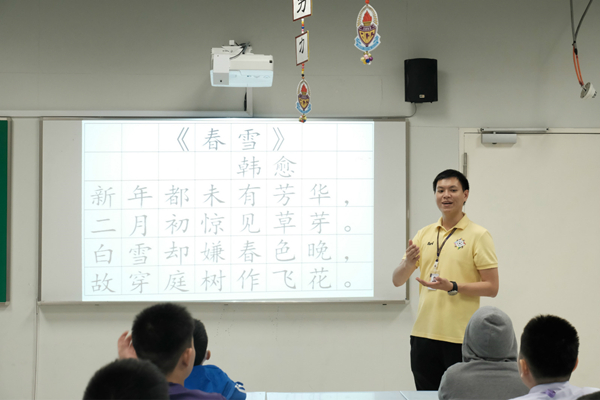 力
《春雪》
韩愈
新年都未有芳华，
二月初惊见草芽。
白雪却嫌春色晚，
故穿庭树作飞花。